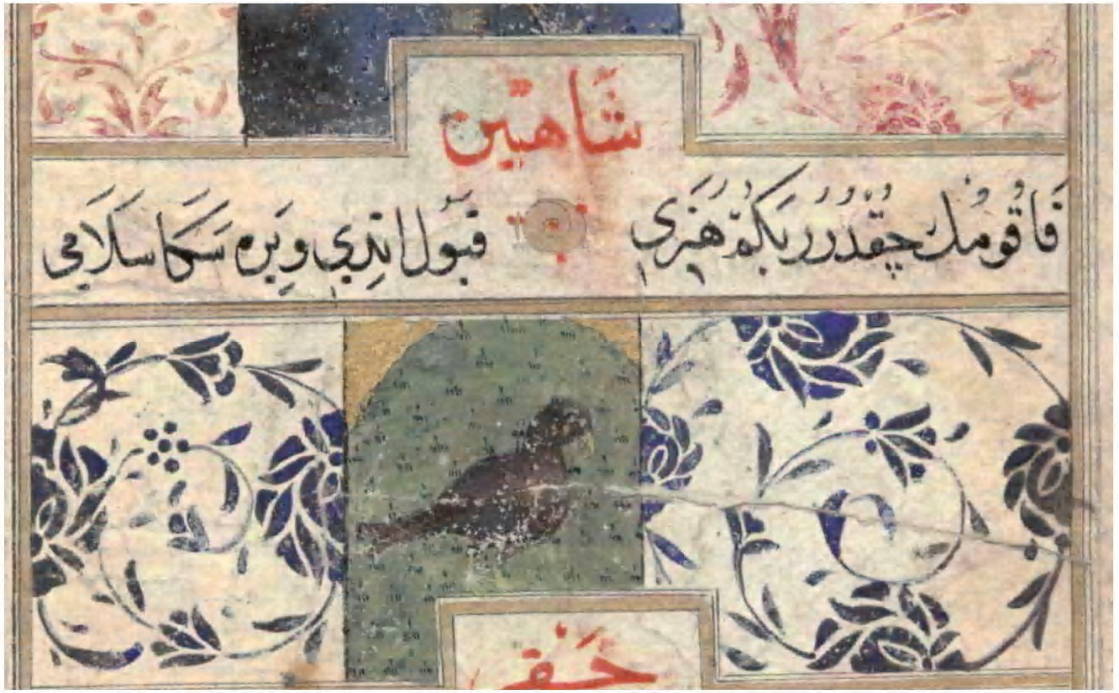 شَاهين
قَاقُومُكْ چُقْدُرُرْ بَكُمْ هُنَرِي قَبُول اِتدِي وِيَرِم سَكَا سَلَامِي